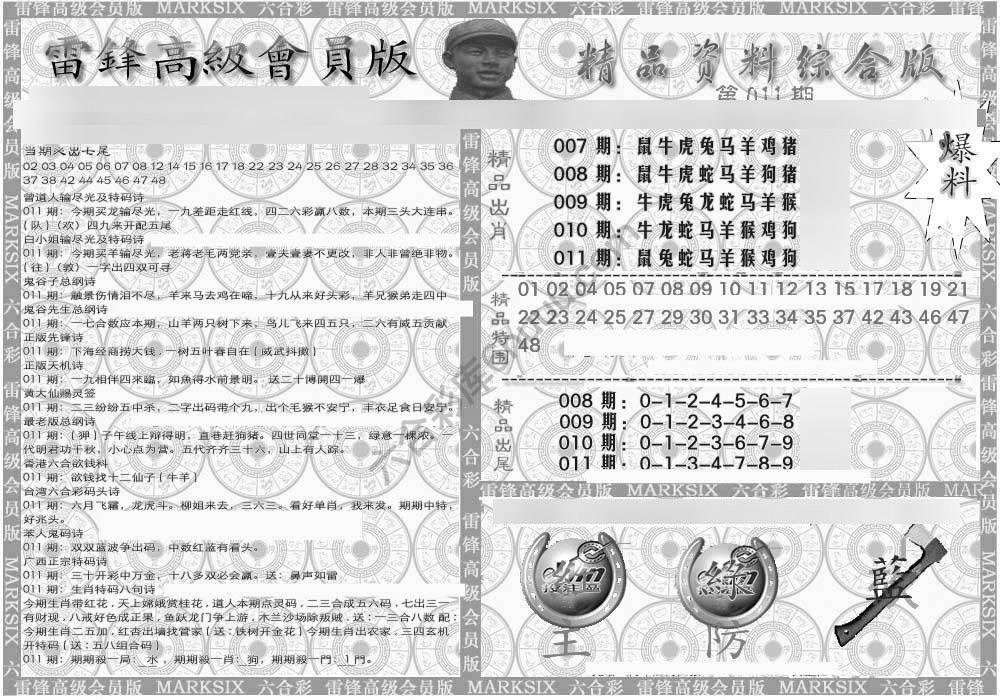 雷锋高级会员版 MARKSIX 六合彩 雷锋高级会员版 MARKSIX 六合彩 雷锋高级会员版 MARKSIX 六合彩 雷锋高级会员版
雷鋒高級會員版
精品资料综合版
第011期
爆料
02 03 04 05 06 07 08 12 14 15 16 17 18 22 23 24 25 26 27 28 32 34 35 36
37 38 42 44 45 46 47 48
曾道人输尽光及特码诗
011期：今期买龙输尽光，一九差距走红线，四二六彩赢八数，本期三头大连串。
{队}（欢）四九来开配五尾
白小姐输尽光及特码诗
011期：今期买羊输尽光，老蒋老毛两党亲，壹夫壹妻不更改，非人非曾绝非物。
{往}（敦）一字出四双可寻
鬼谷子总纲诗
011期：融景伤情泪不尽，羊来马去鸡在啼，十九从来好头彩，羊兄猴弟走四中
鬼谷先生总纲诗
011期：一七合数应本期，山羊两只树下来，鸟儿飞来四五只，二六有威五贡献
正版先锋诗
011期：下海经商捞大钱，一树五叶春自在{威武抖擞}
正版天机诗
011期：一九相伴四來臨，如魚得水前景明。送二十博開四一爆
黄大仙赐灵签
011期：二三纷纷五中杀，二字出码带个九，出个毛猴不安宁，丰衣足食日安宁。
最老版总纲诗
011期：{狎}子午线上辩得明，直巷赶狗猪。四世同堂一十三，绿意一棵浓。一
代明君功千秋，小心点为营。五代齐齐三十六，山上有人踪。
香港六合欲钱料
011期：欲钱找十二仙子{牛羊}
台湾六合彩码头诗
011期：六月飞霜，龙虎斗。柳姐来去，三六三。看好单肖，我来发。期期中特，
好兆头。
苯人鬼码诗
011期：双双蓝波争出码，中数红蓝有看头。
广西正宗特码诗
011期：三十开彩中万金，十八多双必会赢。送：鼻声如雷
011期：生肖特码八句诗
今期生肖带红花，天上嫦娥赏桂花，道人本期点灵码，二三合成五六码，七出三一
有财现，八戒好色成正果，鱼跃龙门争上游，木兰沙场除叛贼，送：一三合八数 配：
今期生肖二五加，红杏出墙找管家{送：铁树开金花}今期生肖出农家，三四玄机
开特码{送：五八组合码}
011期：期期殺一局：水，期期殺一肖：狗，期期殺一門：1門。
精品出肖
007 期：鼠牛虎兔马羊鸡猪
008 期：鼠牛虎蛇马羊狗猪
009 期：牛虎兔龙蛇马羊猴
010 期：牛龙蛇马羊猴鸡狗
011 期：鼠兔蛇马羊猴鸡狗
精品特围
01 02 04 05 07 08 09 10 11 12 13 15 16 17 18 19 21
22 23 24 25 27 29 30 31 33 34 35 37 42 43 46 47
48
精品出尾
008 期：0-1-2-4-5-6-7
009 期：0-1-2-3-4-6-8
010 期：0-1-2-3-6-7-9
011 期：0-1-3-4-7-8-9
雷锋高级会员版 MARKSIX 六合彩 雷锋高级会员版
主
防
藍
雷锋高级会员版 MARKSIX 六合彩 雷锋高级会员版 MARKSIX 六合彩 雷锋高级会员版 MARKSIX 六合彩 雷锋高级会员版